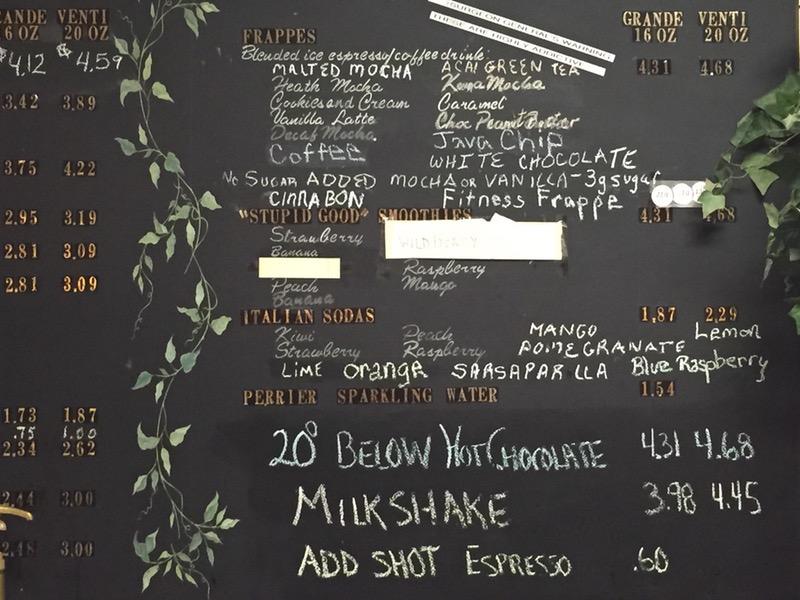 GRANDE VENTI
16 OZ 20 OZ
$4.12 $4.59
3.42 3.89
3.75 4.22
2.95 3.19
2.81 3.09
2.81 3.09
1.73 1.87
.75 1.00
2.34 2.62
2.44 3.00
2.48 3.00
SURGEON GENERAL'S WARNING
THESE ARE HIGHLY ADDICTIVE
GRANDE VENTI
16 OZ 20 OZ
FRAPPES
Blended ice espresso/coffee drink:
4.31 4.68
MALTED MOCHA ACAI GREEN TEA
Heath Mocha Kona Mocha
Cookies and Cream Caramel
Vanilla Latte Choc Peanut Butter
Decaf Mocha Java Chip
Coffee WHITE CHOCOLATE
NO SUGAR ADDED MOCHA OR VANILLA - 3g sugar
CINNABON Fitness Frappe
"STUPID GOOD" SMOOTHIES 4.31 4.68
Strawberry WILD BERRY
Banana
Raspberry
Peach Mango
Banana
ITALIAN SODAS 1.87 2.29
Kiwi Peach MANGO Lemon
Strawberry Raspberry POMEGRANATE
LIME orange SARSAPARILLA Blue Raspberry
PERRIER SPARKLING WATER 1.54
20° BELOW HOT CHOCOLATE 4.31 4.68
MILKSHAKE 3.98 4.45
ADD SHOT ESPRESSO .60